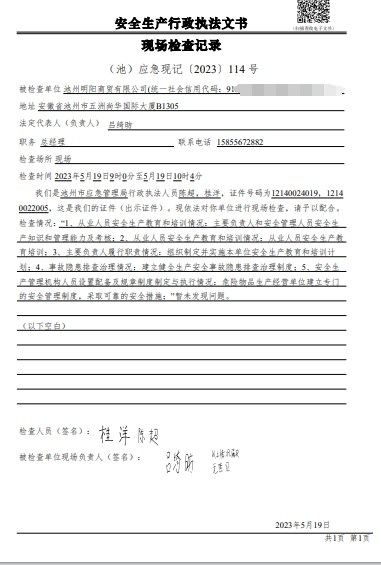 安全生产行政执法文书
(扫描查验电子文书)
现场检查记录
（池）应急现记〔2023〕114 号
被检查单位 池州明阳商贸有限公司(统一社会信用代码：91
地址 安徽省池州市五洲尚华国际大厦B1305
法定代表人（负责人） 吕绮昉
职务 总经理 联系电话 15855672882
检查场所 现场
检查时间 2023年5月19日9时0分至5月19日10时4分
我们是池州市应急管理局行政执法人员陈超，桂洋，证件号码为12140024019，1214
0022005，这是我们的证件（出示证件）。现依法对你单位进行现场检查，请予以配合。
检查情况：“1、从业人员安全生产教育和培训情况：主要负责人和安全管理人员安全生
产知识和管理能力及考核；2、从业人员安全生产教育和培训情况：从业人员安全生产教
育培训；3、主要负责人履行职责情况：组织制定并实施本单位安全生产教育和培训计
划；4、事故隐患排查治理情况：建立健全生产安全事故隐患排查治理制度；5、安全生
产管理机构人员设置配备及规章制度制定与执行情况：危险物品生产经营单位建立专门
的安全管理制度，采取可靠的安全措施；”暂未发现问题。
（以下空白）
检查人员（签名）： 桂洋 陈超
被检查单位现场负责人（签名）： 吕绮昉
2023年5月19日
共1页 第1页